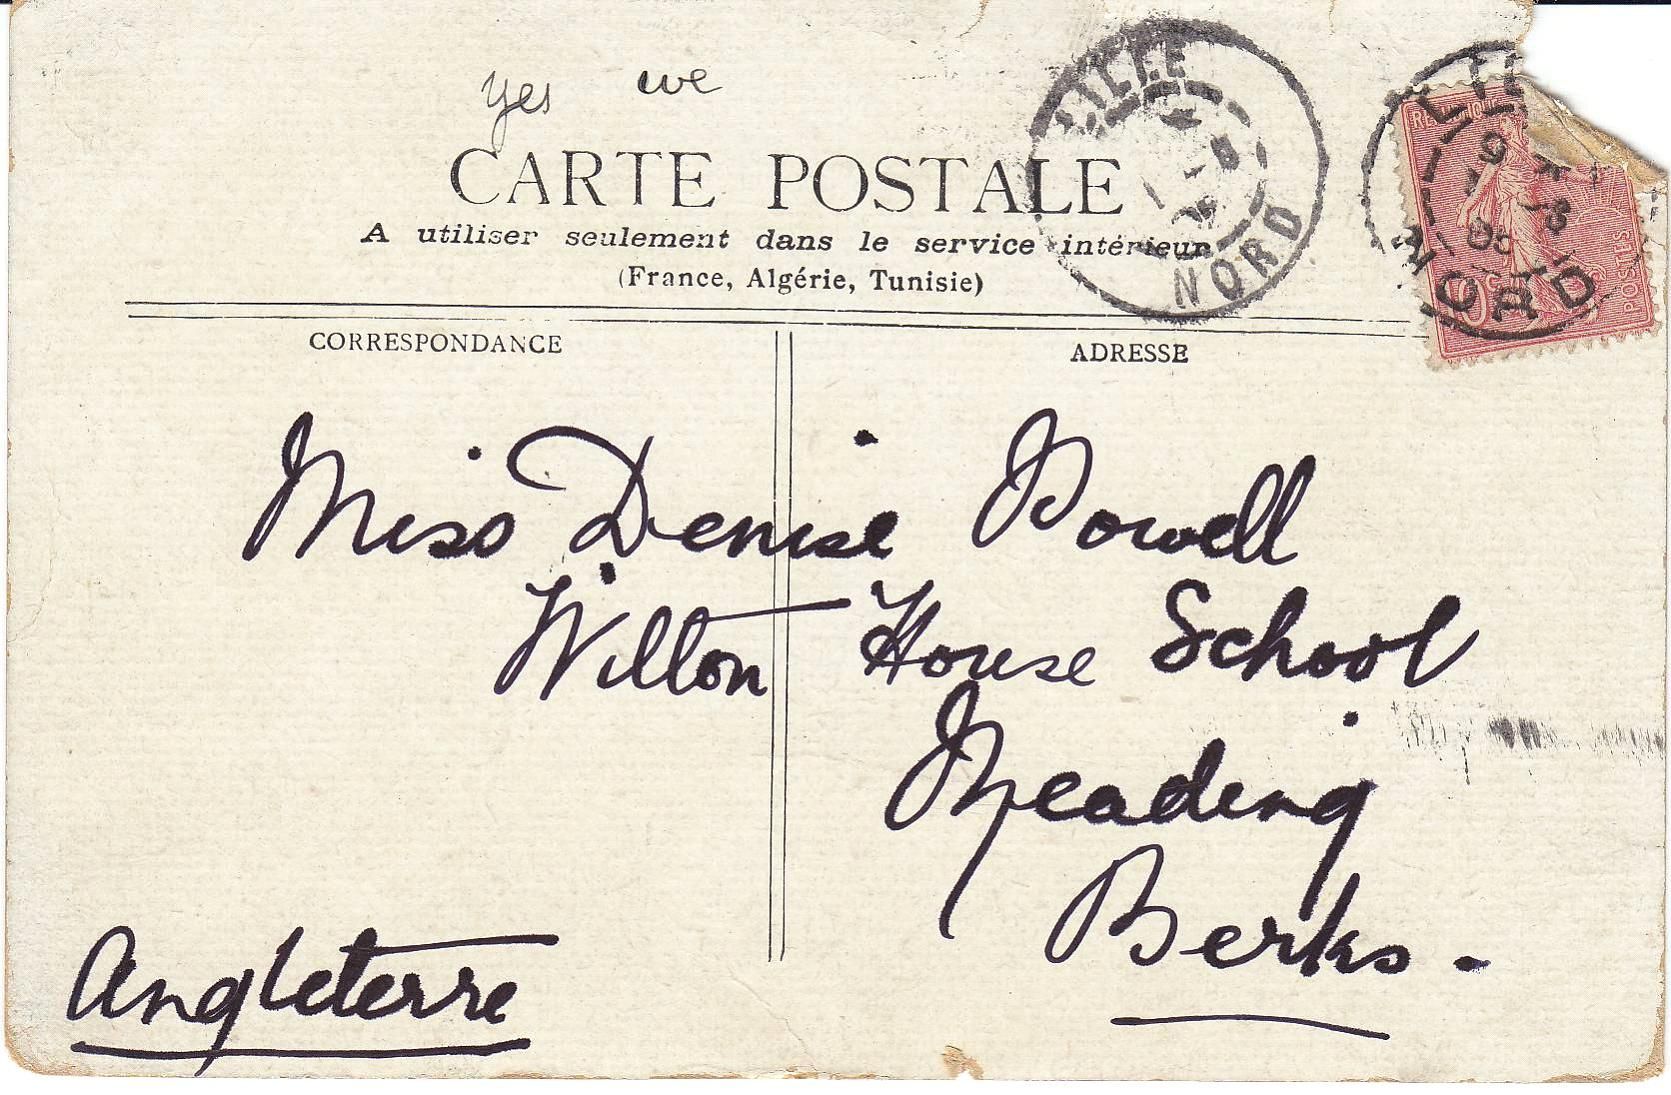 yes we
CARTE POSTALE
A utiliser seulement dans le service intérieur
(France, Algérie, Tunisie)
LILLE
NORD
LIL
NORD
POSTES
CORRESPONDANCE
ADRESSE
Miss Denise Powell
Wilton House School
Reading
Berks.
Angleterre